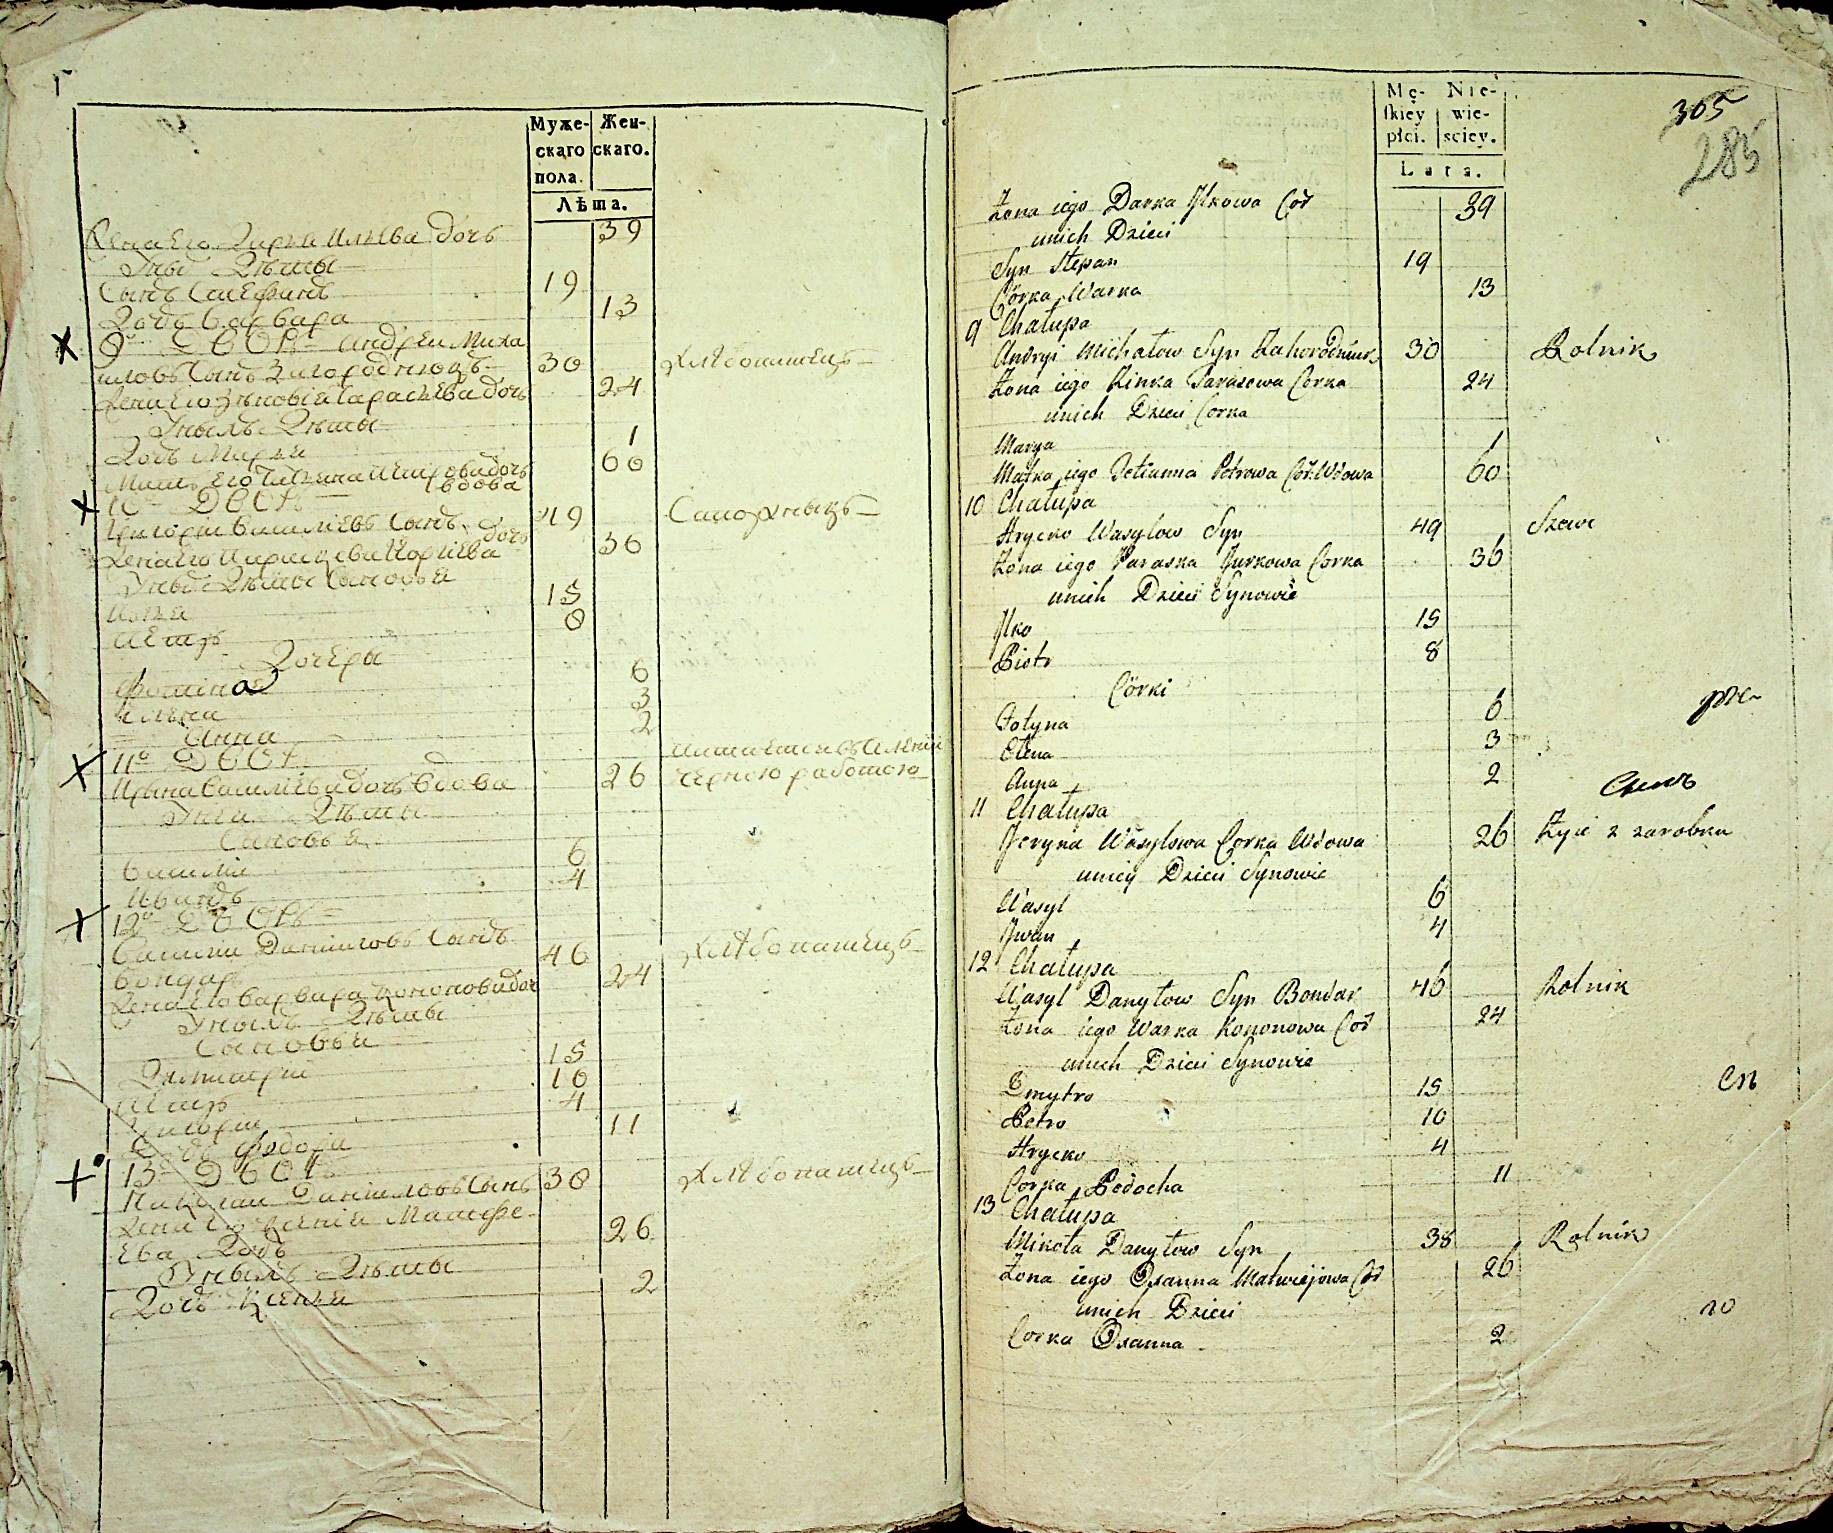 Муже-
скаго
пола.
Жен-
скаго.
Лѣта.
Жена Его Дарья Ильева дочь 39
У нихъ Дѣти
Сынъ Стефанъ 19
Дочь Варвара 13
9 ДВОРЪ Андрей Миха
иловъ Сынъ Загороднюкъ 30 Хлѣбопашецъ
Жена Его Зѣновья Тарасьева дочь 24
У ныхъ Дѣты
Дочь Марья 1
Мать Его Татьяна Петрова дочь 60
вдова
10 ДВОРЪ
Григорій Василіевъ Сынъ 49 Сапожныкъ
Жена Его Параскева Юріева дочь 36
У ныхъ Дѣты Сыновья
Илья 15
Петръ 8
Дочеры
Фотіна 6
Елѣна 3
Анна 2
11 ДВОРЪ
Ирына Василіева дочь Вдова 26 черною работою
У нея Дѣты
Сыновья
Василій 6
Иванъ 4
12 ДВОРЪ
Василій Даниловъ Сынъ 46 Хлѣбопашецъ
Бондарь
Жена Его Варвара Кононова доч 24
У ныхъ Дѣты
Сыновья
Димитрій 15
Петръ 10
Григорій 4
Дочь Федосія 11
13 ДВОРЪ
Николай Даниловъ Сынъ 38 Хлѣбопашецъ
Жена Его Ксенія Матфе-
ева Дочь 26
У ныхъ Дѣты
Дочь Ксенья 2
Mę-
skiey
płci.
Nie-
wie-
sciey.
Lata.
305
285
Zona iego Darka Jlkowa Cor 39
unich Dzieci
Syn Stepan 19
Córka Warka 13
9 Chałupa
Andryi Michałow Syn Zahorodniuk 30 Rolnik
Zona iego Zinka Tarasowa Corka 24
unich Dzieci Corka
Marya 1
Matka iego Tetianna Petrowa Cor. Wdowa 60
10 Chałupa
Hrycko Wasylow Syn 49 Szewc
Zona iego Paraska Jurkowa Corka 36
unich Dzieci Synowie
Jlko 15
Piotr 8
Córki
Fotyna 6
Elena 3
Anna 2
11 Chałupa
Jeryna Wasylowa Corka Wdowa 26 Zyie z zarobku
uniey Dzieci Synowie
Wasyl 6
Jwan 4
12 Chałupa
Wasyl Danyłow Syn Bondar 46 Rolnik
Zona iego Warka Kononowa Cor 24
unich Dzieci Synowie
Dmytro 15
Petro 10
Hrycko 4
Corka Fedocha 11
13 Chałupa
Mikoła Danyłow Syn 38 Rolnik
Zona iego Oxanna Matwiejowa Cor 26
unich Dzieci
Corka Oxanna 2